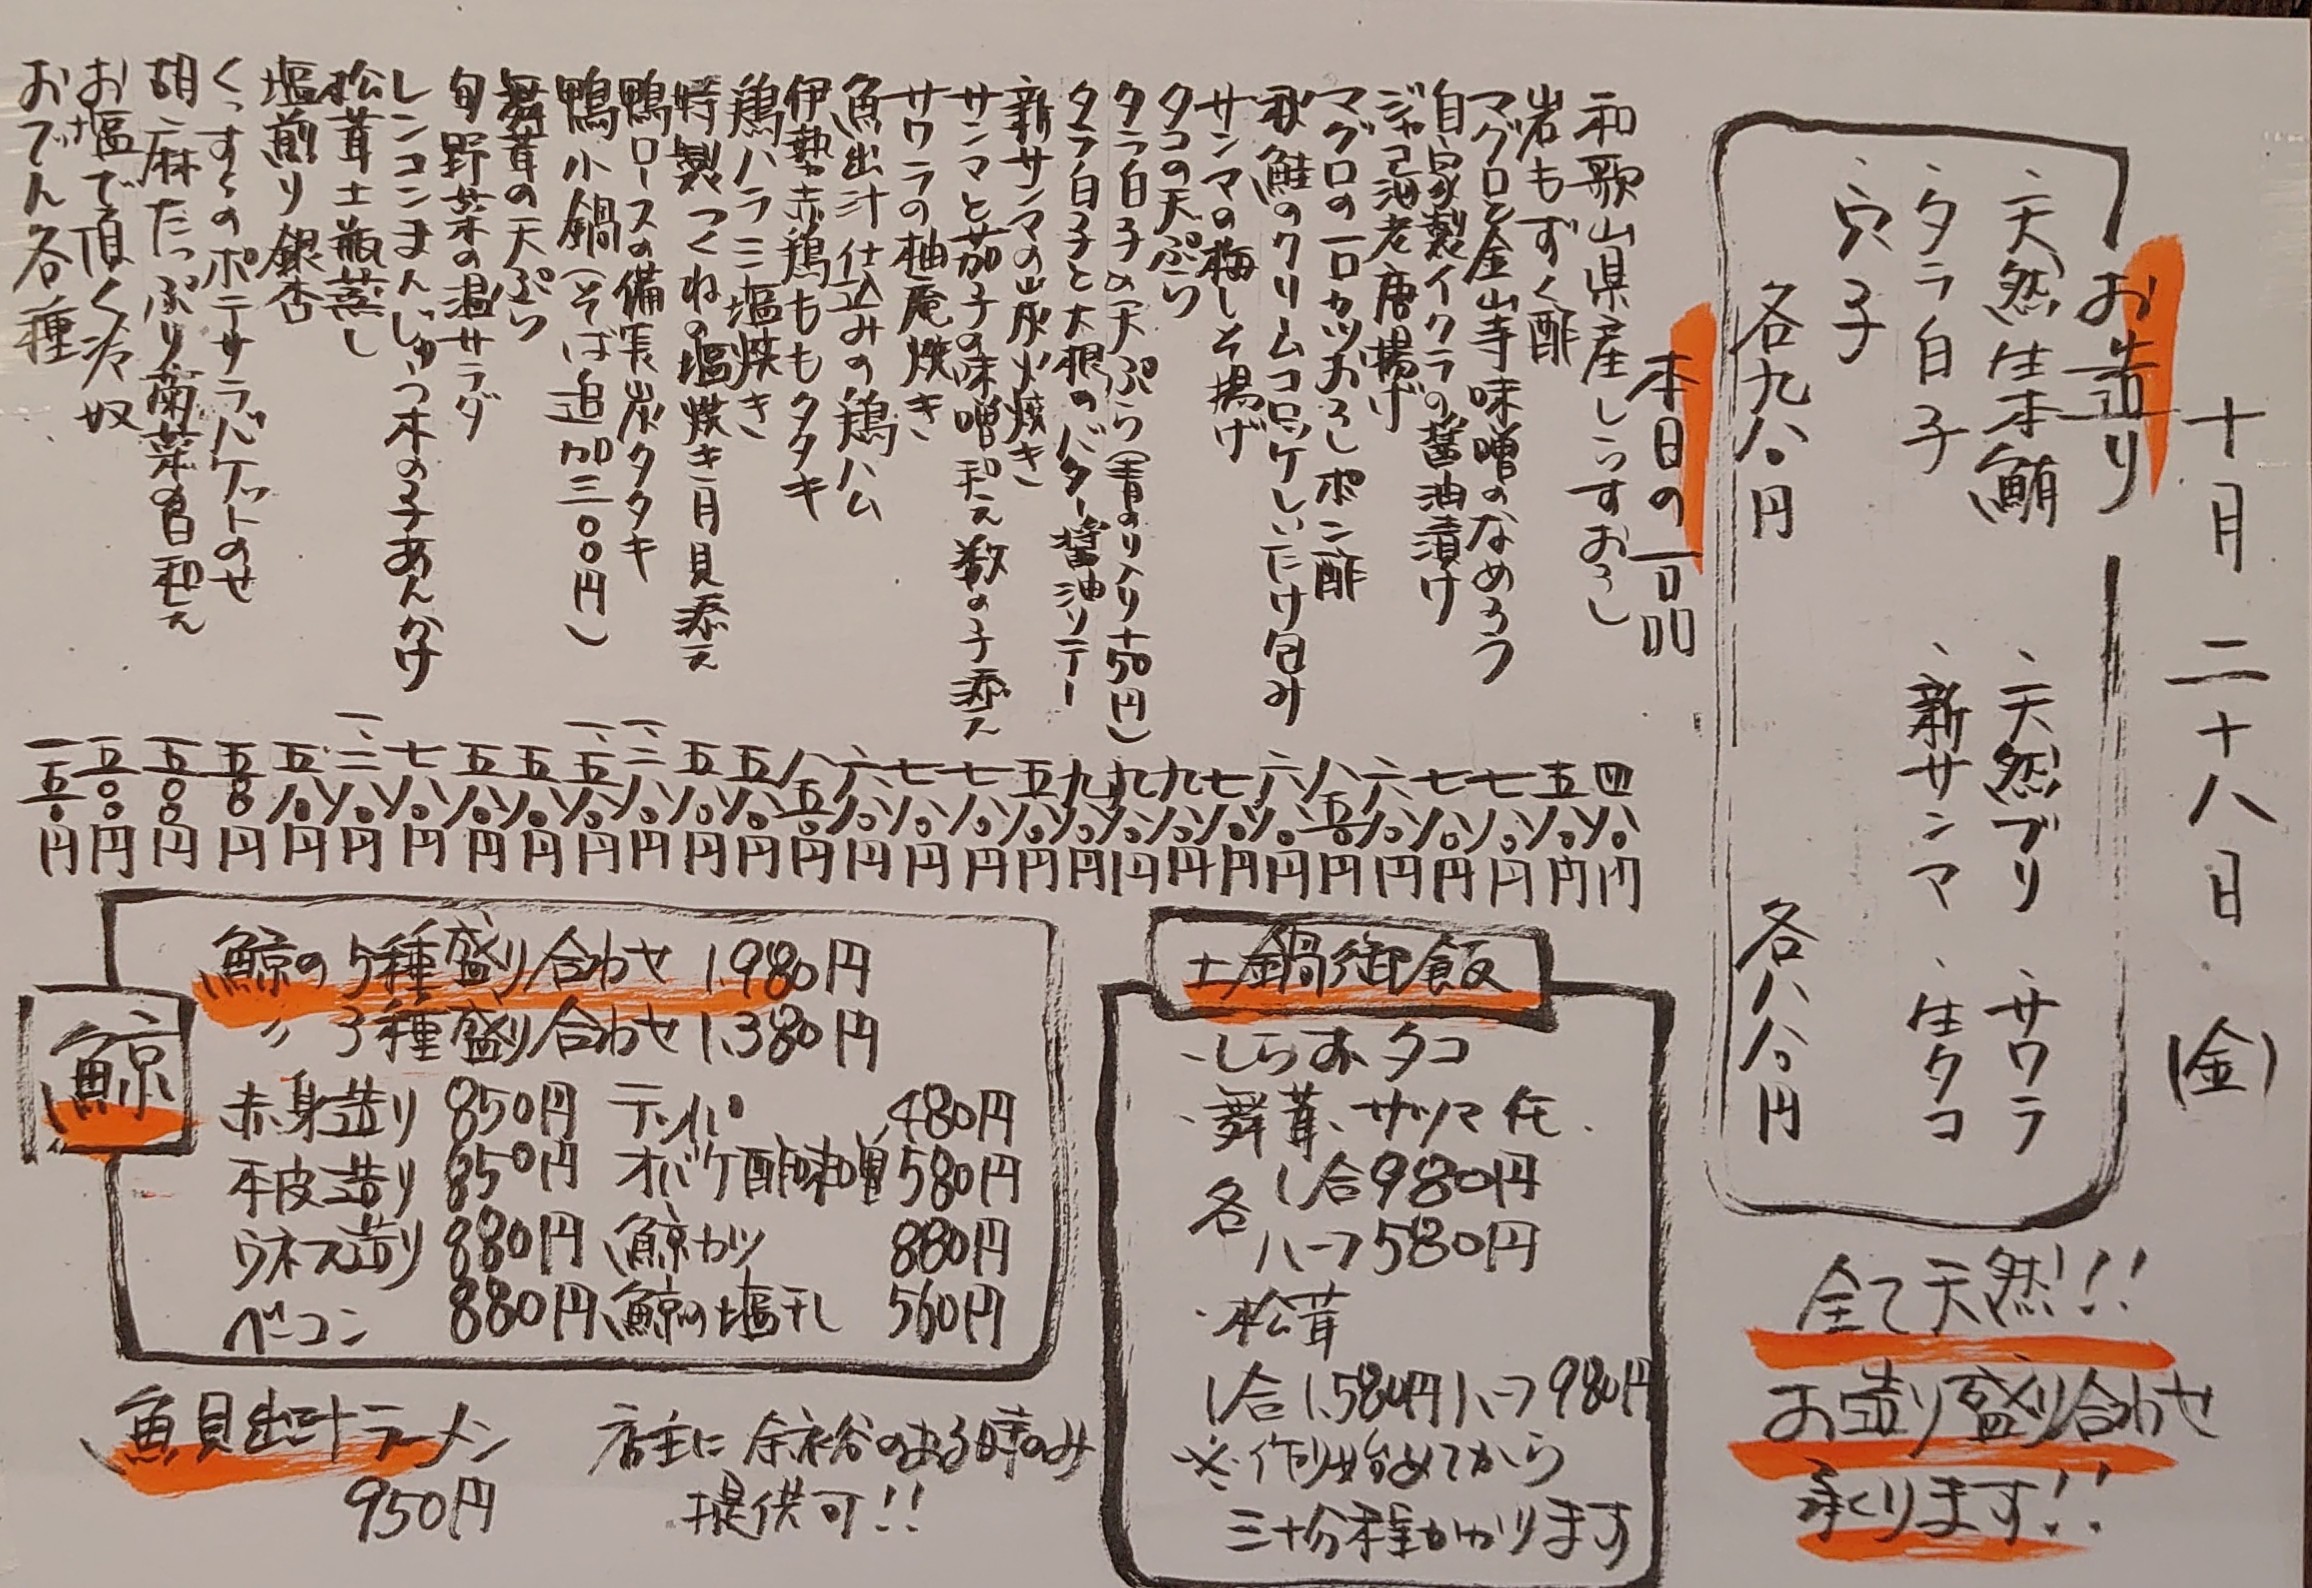 十月二十八日(金)
お造り
、天然生本鮪
、タラ白子
、穴子
各九八〇円
、天然ブリ、サワラ
、新サンマ、生タコ
各八八〇円
全て天然!!
お造り盛り合わせ
承ります!!
本日の一品
和歌山県産しらすおろし 四八〇円
岩もずく酢 五八〇円
マグロと金山寺味噌のなめろう 七八〇円
自家製イクラの醤油漬け 七八〇円
ジャコ海老唐揚げ 六八〇円
マグロの一口カツおろしポン酢 八五〇円
秋鮭のクリームコロッケしいたけ包み 六八〇円
サンマの梅しそ揚げ 七八〇円
タコの天ぷら 九八〇円
タラ白子の天ぷら(青のり入り+50円) 九八〇円
タラ白子と大根のバター醤油ソテー 九八〇円
新サンマの炭火焼き 五八〇円
サンマと茄子の味噌和え数の子添え 七八〇円
サワラの柚庵焼き 七八〇円
魚出汁仕込みの鶏ハム 六八〇円
伊勢赤鶏ももタタキ 八五〇円
鶏ハラミ塩焼き 五八〇円
特製つくねの塩焼き月見添え 五八〇円
鴨ロースの備長炭タタキ 一、二八〇円
鴨小鍋(そば追加三〇〇円) 一、五八〇円
舞茸の天ぷら 五八〇円
旬野菜の温サラダ 五八〇円
レンコンまんじゅう木の子あんかけ 七八〇円
松茸土瓶蒸し 一、二八〇円
塩煎り銀杏 五八〇円
くっすゝのポテサラバケットのせ 五〇〇円
胡麻たっぷり菊菜の白和え 五〇〇円
お塩で頂く冷奴 五〇〇円
おでん各種 一五〇円
土鍋御飯
・しらす、タコ
・舞茸、サツマ任
各 1合980円
ハーフ580円
・松茸
1合1,580円ハーフ980円
※作り始めてから
三十分程かかります
鯨
鯨の5種盛り合わせ 1,980円
〃 3種盛り合わせ 1,380円
赤身造り 850円 テッパ 480円
本皮造り 850円 オバケ酢味噌 580円
ウネス造り 880円 鯨カツ 880円
ベーコン 880円 鯨の塩干し 560円
魚貝出汁ラーメン
950円
店主に余裕のある時のみ
提供可!!